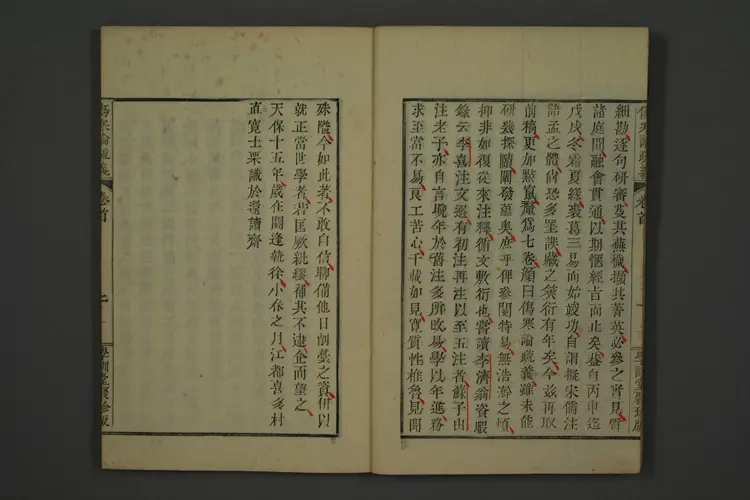 細勘逐句研審芟其蕪穢擷其菁英必參之管見質
諸庭聞融會貫通以期愜經旨而止矣蓋自丙申迄
戊戌冬霜夏綠裘葛三易而始竣功自謂擬宋儒注
語孟之體尚恐多罣誤藏之篋衍有年矣今茲再取
前稿更加點竄釐爲七卷顏曰傷寒論疏義雖未能
研幾探賾闡發蘊奧庶乎俾參閱特易無浩瀚之煩
抑非如復從來注釋衍文敷衍也嘗讀李濟翁資暇
錄云李善注文選有初注再注以至五注者蘇子由
注老子亦自言晚年於舊注多所改易學以年進務
求至當不易良工苦心千載如見寬質性椎魯見聞
傷寒論疏義
卷首
學訓堂聚珍版
殊隘今如此著不敢自信聊備他日劘藝之資併以
就正當世學者君匡厥紕繆補其不逮企而望之
天保十五年歲在閼逢執徐小春之月江都喜多村
直寬士栗識於還讀齋
傷寒論疏義
卷首
上
學訓堂聚珍版